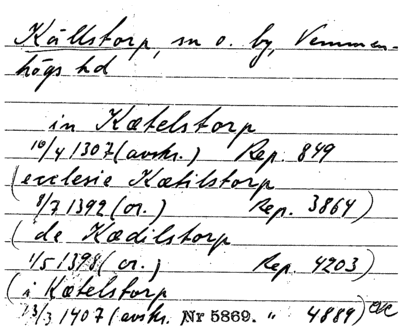 Källstorp, sn o. by, Vemmen-
högs hd
in Kætelstorp
10/4 1307 (avskr.) Rep. 849
(ecclesie Kætilstorp
8/7 1392 (or.) Rep. 3864)
(de Kædilstorp
1/5 1398 (or.) Rep. 4203)
(i Kætelstorp
13/3 1407 (avskr. Nr 5869. " 4889) etc